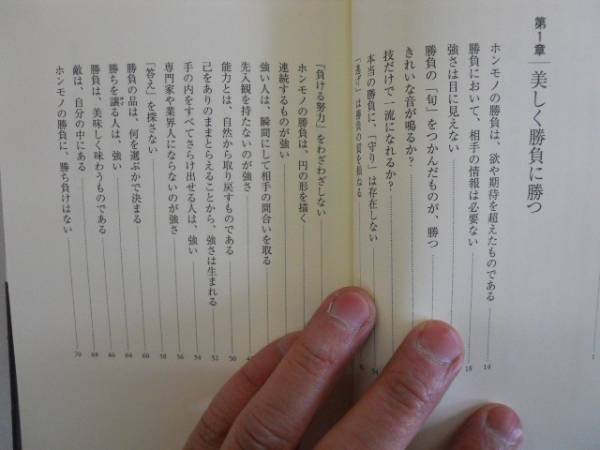 第1章 美しく勝負に勝つ
ホンモノの勝負は、欲や期待を超えたものである 14
勝負において、相手の情報は必要ない 18
強さは目に見えない
勝負の「旬」をつかんだものが、勝つ
きれいな音が鳴るか?
技だけで一流になれるか?
本当の勝負に、「守り」は存在しない 34
「逃げ」は勝負の質を損ねる
「負ける努力」をわざわざしない
ホンモノの勝負は、円の形を描く
連続するものが強い
強い人は、瞬間にして相手の間合いを取る
先入観を持たないのが強さ
能力とは、自然から取り戻すものである 50
己をありのままとらえることから、強さは生まれる 52
手の内をすべてさらけ出せる人は、強い 54
専門家や業界人にならないのが強さ 56
「答え」を探さない 58
勝負の品は、何を選ぶかで決まる 60
勝ちを譲る人は、強い 64
勝負は、美味しく味わうものである 66
敵は、自分の中にある 68
ホンモノの勝負に、勝ち負けはない 70